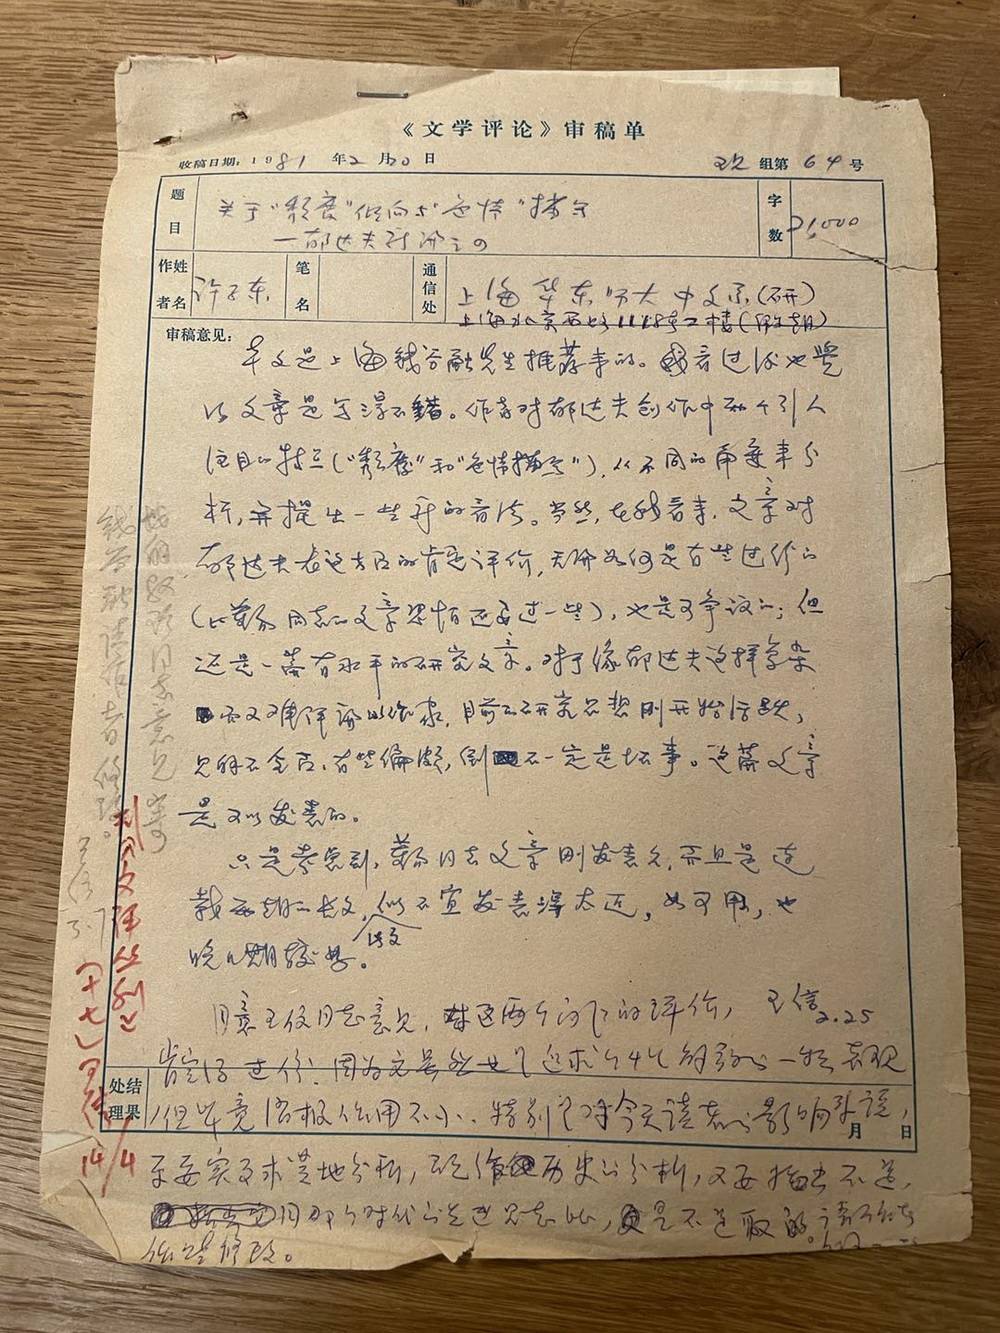 《文学评论》审稿单
收稿日期：1981年2月20日 现组第64号
题目 关于“颓废”倾向与“色情”描写
—郁达夫新论之四
字数 21,000
作者姓名 许子东 笔名 通信处 上海华东师大中文系(研)
上海北京西路1118弄2楼(假期)
审稿意见：
本文是上海钱谷融先生推荐来的。我看过后也觉
此文章是写得不错。作者对郁达夫创作中两个引人
注目的特点(“颓废”和“色情描写”)，从不同的角度来分
析，并提出一些新的看法。当然，在我看来，文章对
郁达夫在这方面的肯定评价，无论如何是有些过份的
(比 同志的文章恐怕还要过一些)，也是可争议的；但
还是一篇有水平的研究文章。对于像郁达夫这样复杂
而又难评论的作家，目前的研究思想刚开始活跃，
见解不全面，有些偏颇，倒不一定是坏事。这篇文章
是可以发表的。
只是考虑到， 同志文章刚发表完，而且是连
载两期的长文，此文似不宜发表得太近，如可用，也
晚几期较好。
王信
2.25
同意王信同志意见，对这两个问题的评价，
肯定得过份。因为它虽然也是追求个性解放的一种表现
但毕竟消极作用不小。特别是对今天读者的影响来说，
处理结果 月 日
更要实事求是地分析，既作历史的分析，又要指出不足，
用那个时代的 ，是不足取的。请
作些修改。
钱谷融 请作者修改。
按 同志意见寄
王信
3.7
刊《文评丛刊》
(十七)
14/4